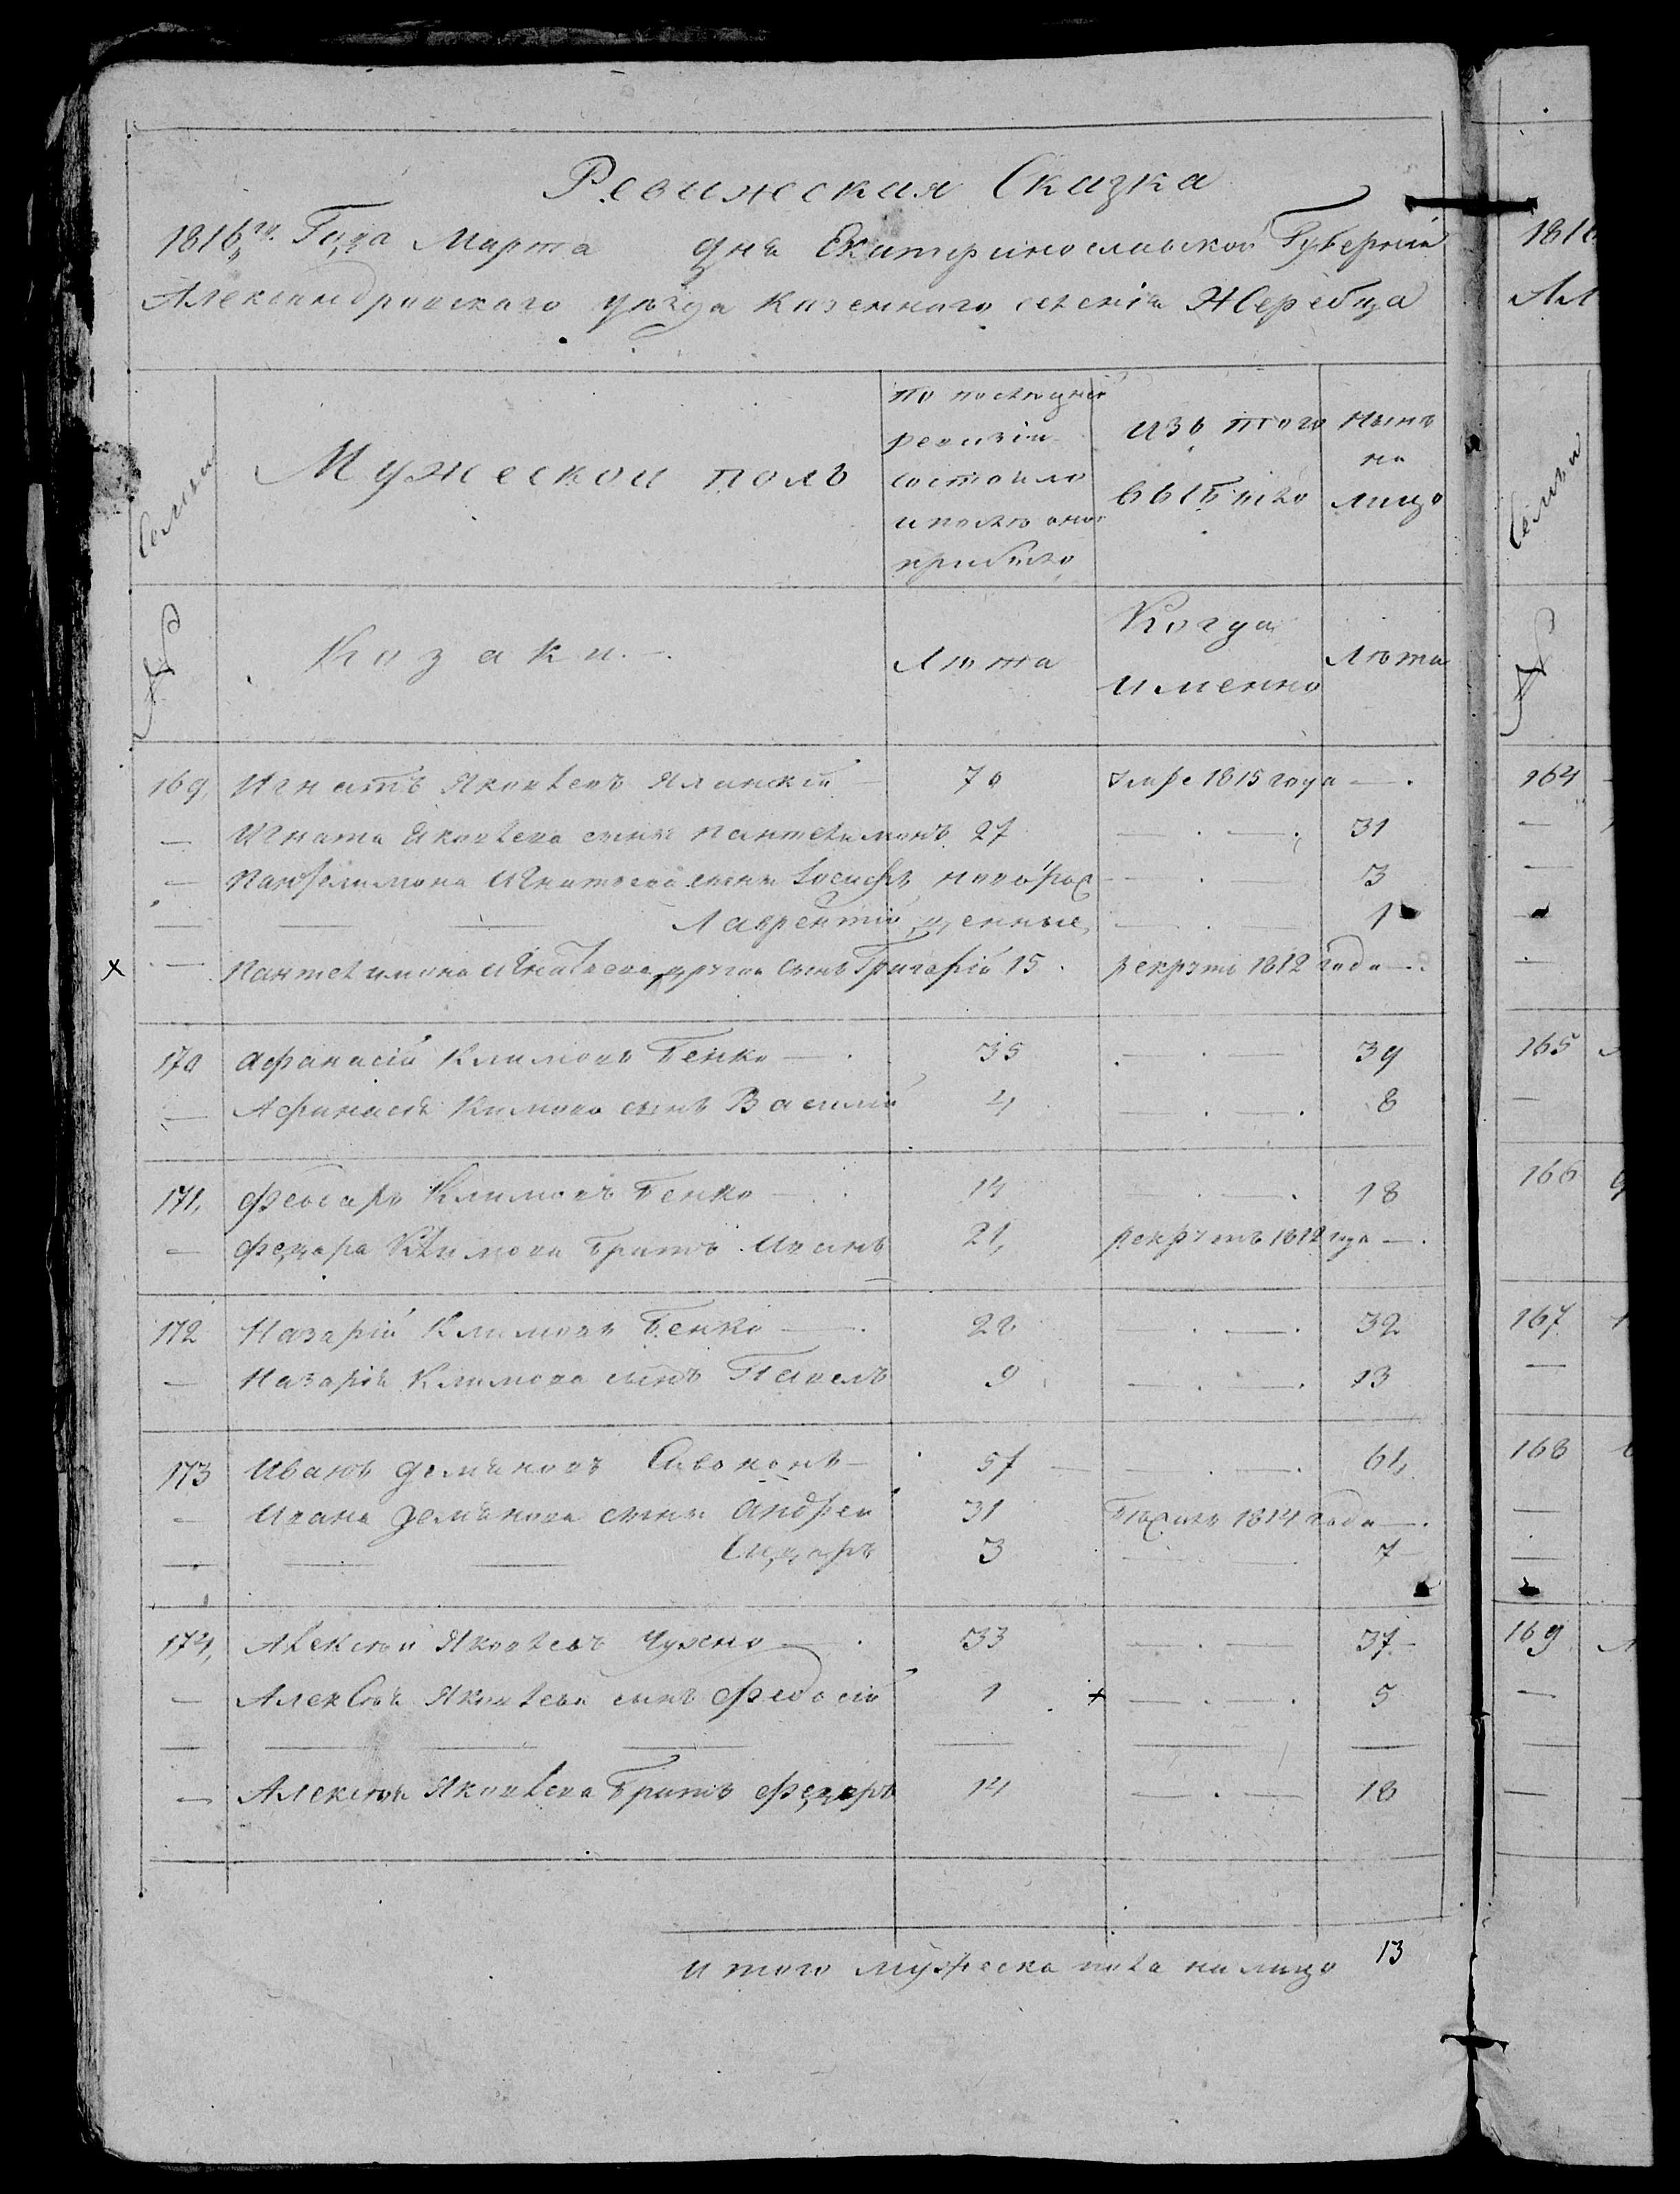 Ревижская Сказка
1816го Года Марта дня Екатеринославской Губернiи
Александровского уезда Казенного селенiя Жеребца
Семьи
Мужескои полъ
по последней ревизiи состояло и после оной прибыло
изъ того выбыло
Нынѣ на лицо
№
Козаки.
Лѣта
Когда именно
Лѣта
169, Игнатъ Яковлевъ Ялинскiй 70 умре 1815 года —.
— Игната Яковлева сынъ Пантелимонъ 27 — . — . 31
— Пантелимона Игнатьева сынъ Iосифъ новорож — . — 3
— — — Лаврентiй денные, — . — 1
x — Пантелимона Игнатьева другой сынъ Григорiй 15. рекрутъ 1812 года —.
170 Афанасiй Климовъ Бенко — . 35 . — . — 39
— Афанасiя Климова сынъ Василiй 4 — . — . 8
171, Феодоръ Климовъ Бенко — . 14 — . — . 18
— Федора Климова братъ Иванъ 21, рекрутъ 1812 года —.
172 Назарiй Климовъ Бенко — . 28 — . — . 32
— Назарiя Климова сынъ Павелъ 9 — . — . 13
173 Иванъ Демяновъ Сивоконь — 57 — — . — . 61,
— Ивана Демянова сынъ Андрей 31 бѣжалъ 1814 года —.
— — — Сидоръ 3 7
174, Алексѣй Яковлевъ Чужно — . 33 — . — 37 —
— Алексѣя Яковлева сынъ Феодосiй 1 + — . — . 5
— — — — — — —
— Алексѣя Яковлева братъ Федоръ 14 — . — 18
итого мужеска пола на лицо 13
1816
Ал
Семьи
№
164
165
166
167
168
169